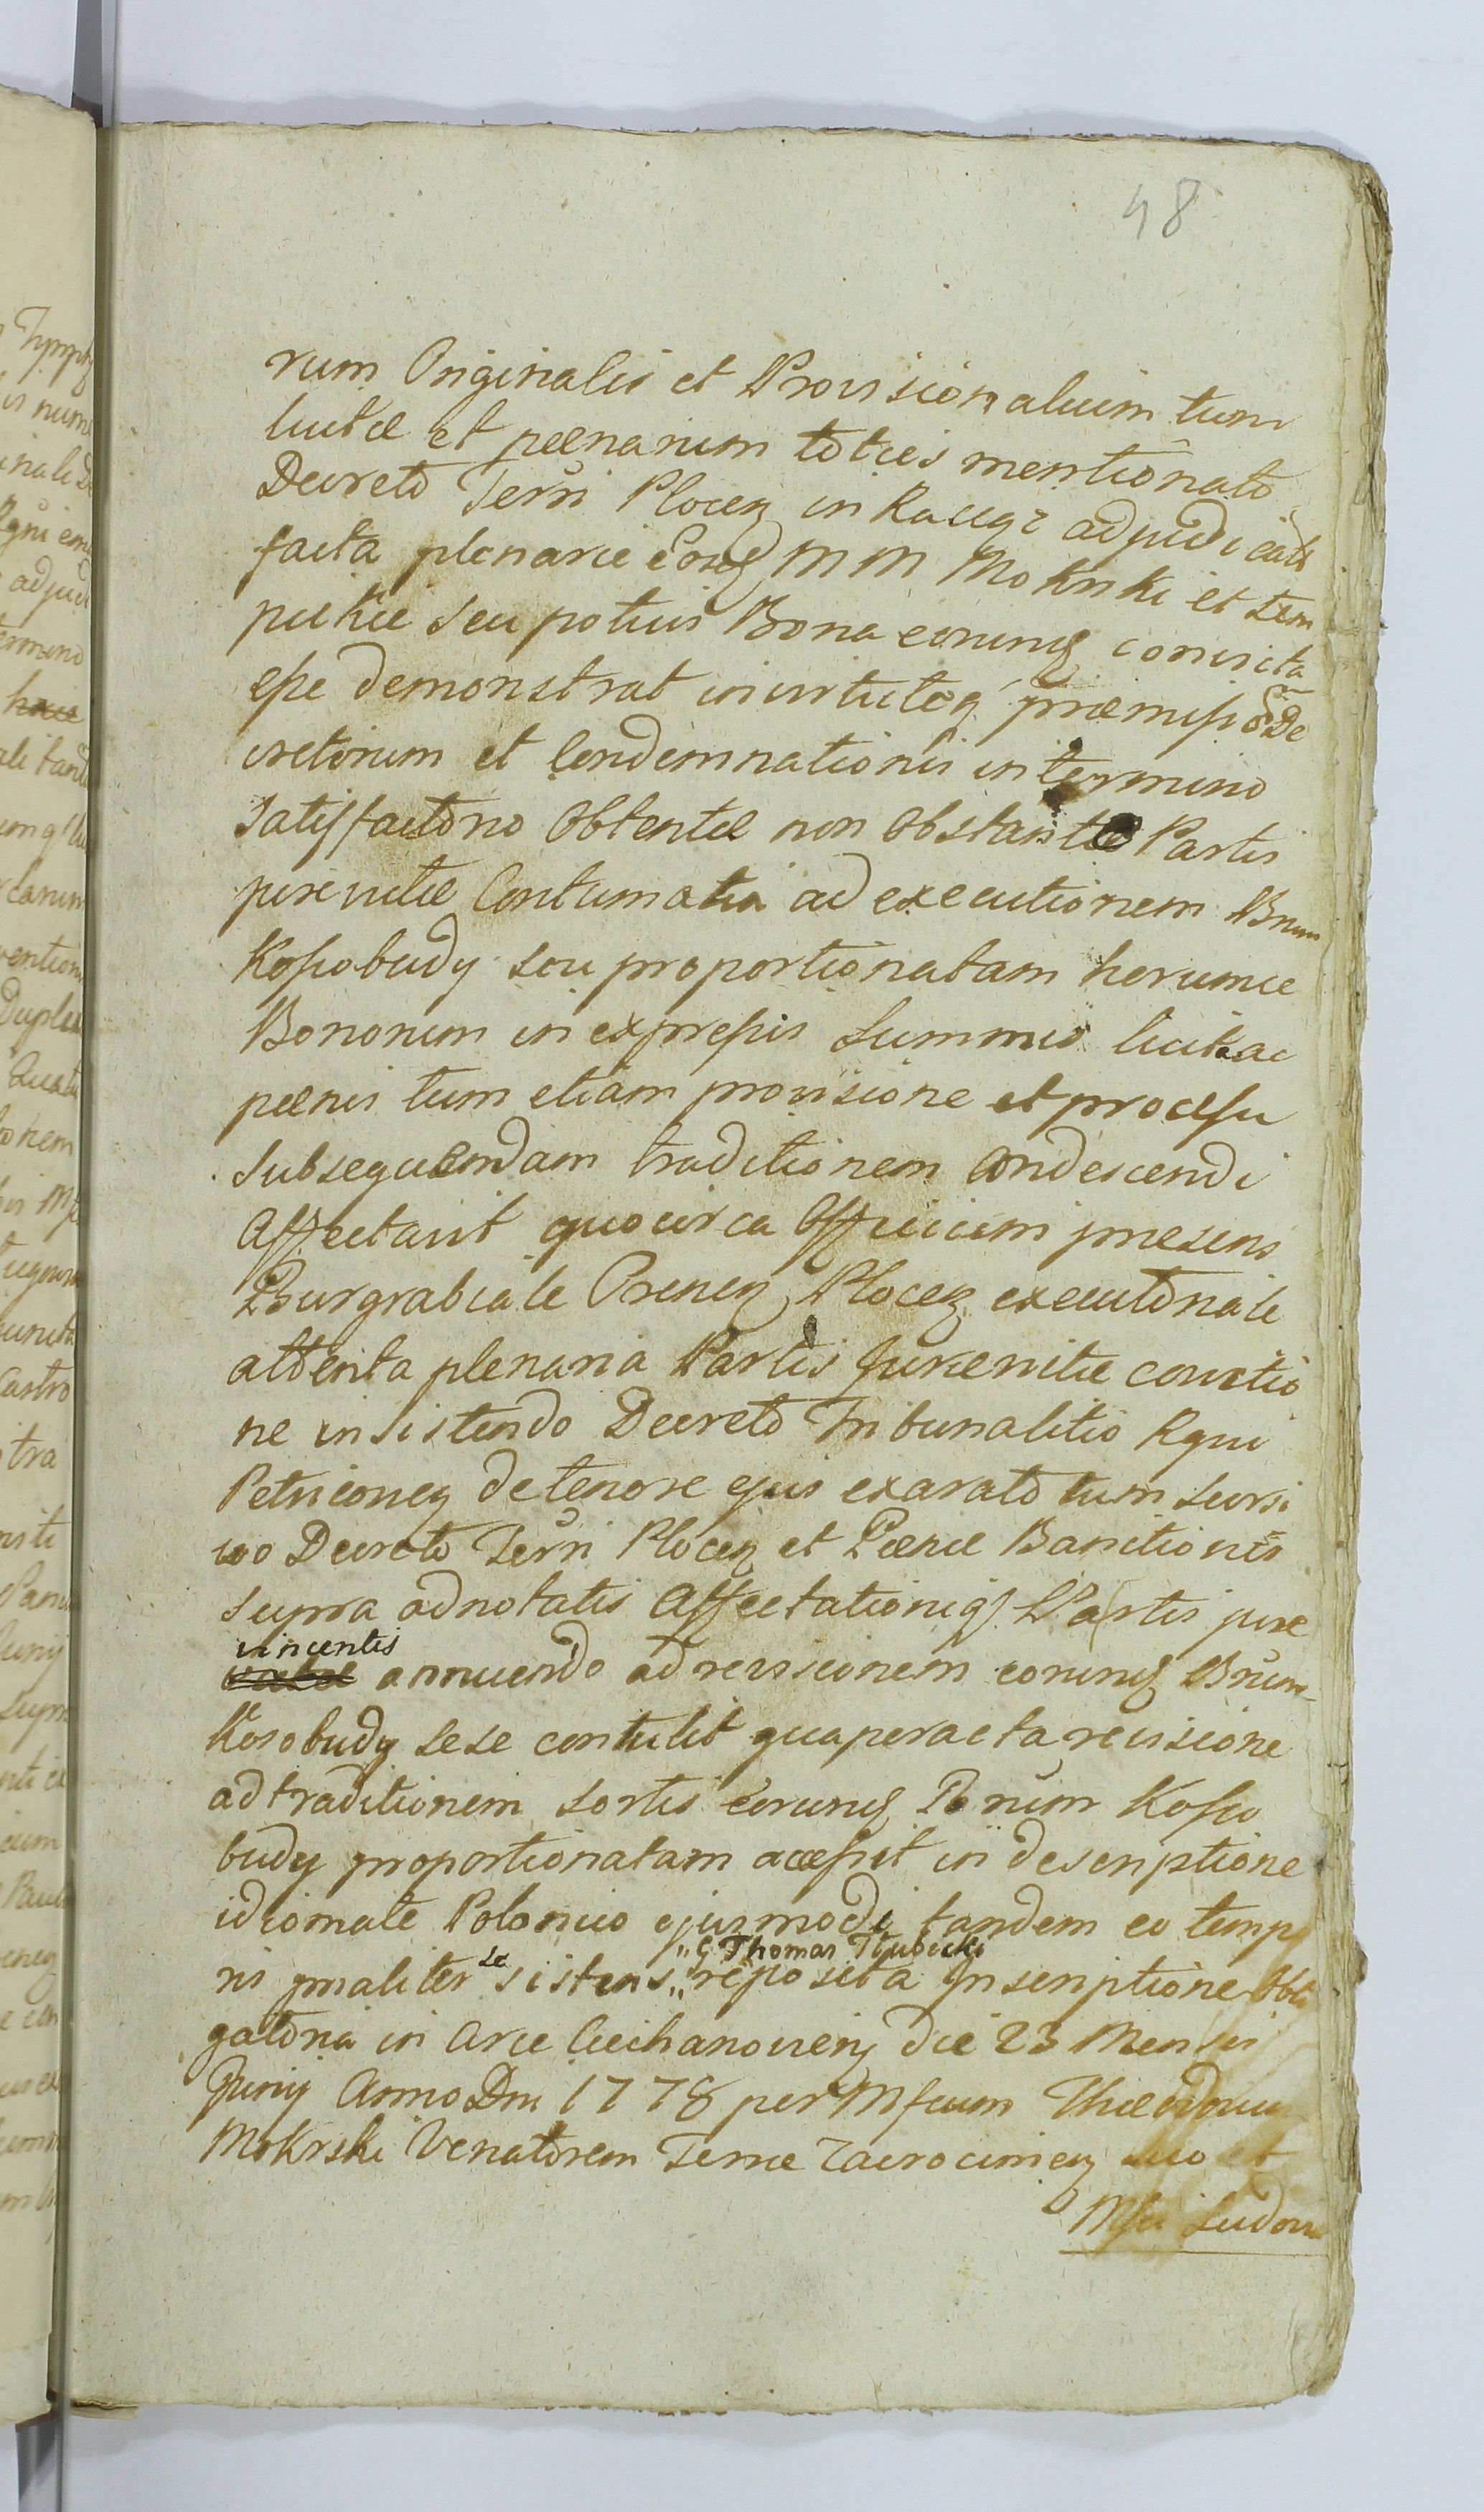 48
rum Originalis et Provisionalium tum
luitæ et pœnarum toties mentionato
Decreto Terri Plocen in Raciąż adjudicata
facta plenarie eosd MM Mokrski et Sem
pitkie seu potius Bona eorund convicta
esse demonstrat in virtuteq præmisso De
cretorum et Condemnationis in termino
satisfactorio obtentæ non obstante Partis
jure victæ Contumatia ad executionem Bnrum
Kossobudy seu proportionatam horumce
Bonorum in expressis Summis luitæ ac
pœnis tum etiam provisione et processu
subsequendam traditionem condescendi
Affectavit quocirca Officium præsens
Burgrabiale Prenen Plocen executoriale
attenta plenaria Partis Jurevictæ convictio
ne insistendo Decreto Tribunalitio Rgni
Petricovien de tenore ejus exarato tum Seorsi
vo Decreto Terri Plocen et Pœnæ Banitionis
supra adnotatis Affectationiq Partis jure
vincentis
annuendo ad revisionem eorund Bnrum
Kosobudy sese contulit qua peracta revisione
ad traditionem sortis eorund Bnrum Kosso
budy proportionatam accessit in descriptione
idiomate Polonico ejusmodi tandem eo tempo
„G. Thomas Tłubicki
ris pnaliter se sistens „ reposita Inscriptione Obli
gatoria in Arce Ciechanovien die 23 Mensis
Junij Anno Dni 1778 per Mfcum Theodorum
Mokrski Venatorem Terræ Zacrocimen suo et
Mfci Ludovi